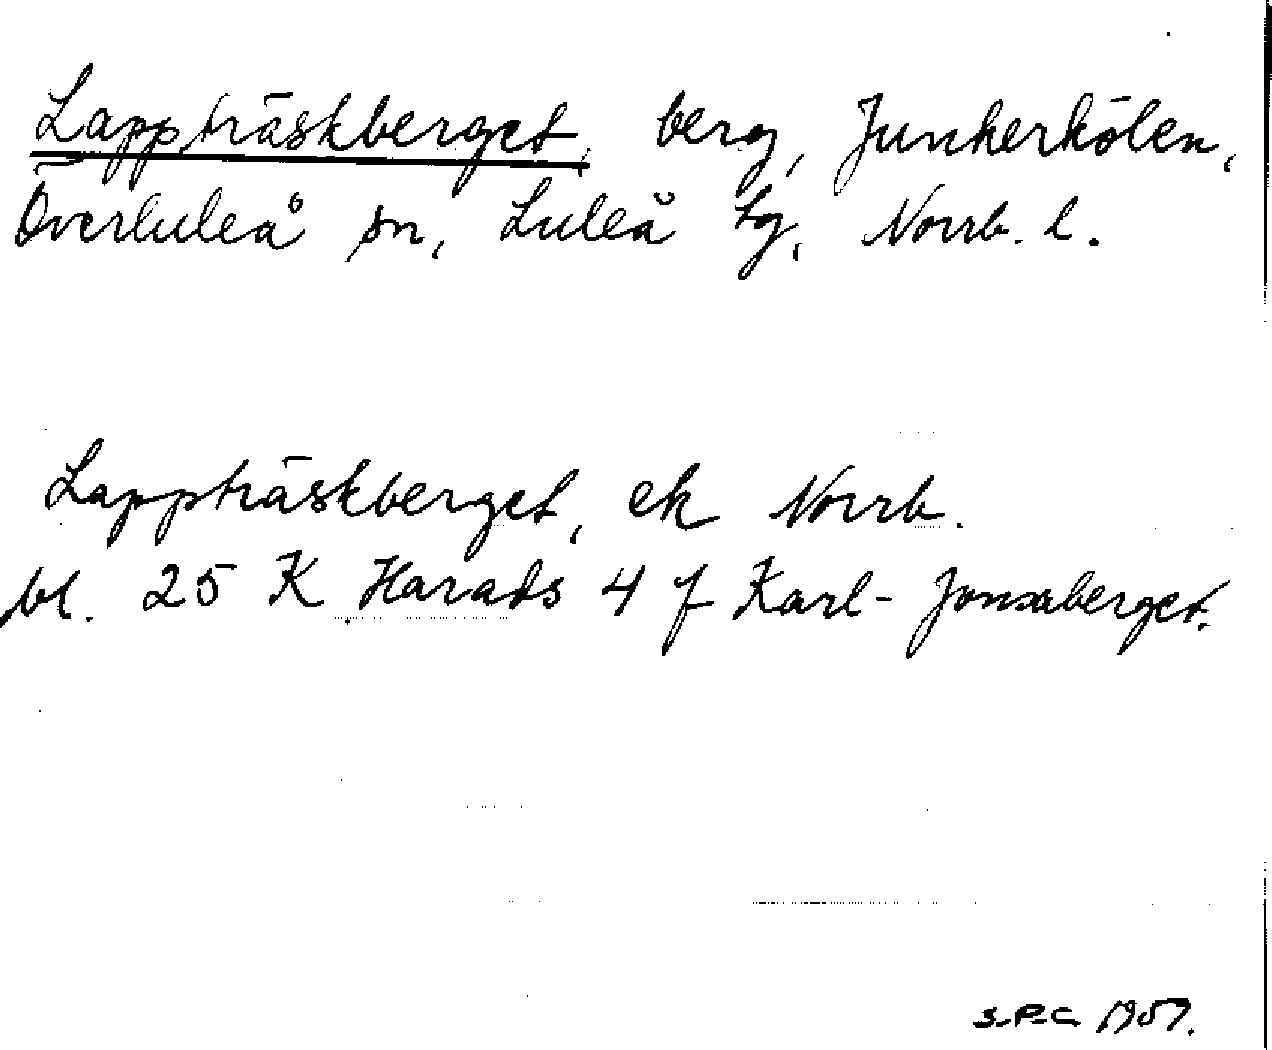 Lappträskberget, berg, Junkerkölen,
Överluleå sn, Luleå tg, Norrb. l.
Lappträskberget, ek Norrb.
bl. 25 K Harads 4 f Karl-Jonsaberget.
S.P.C. 1957.